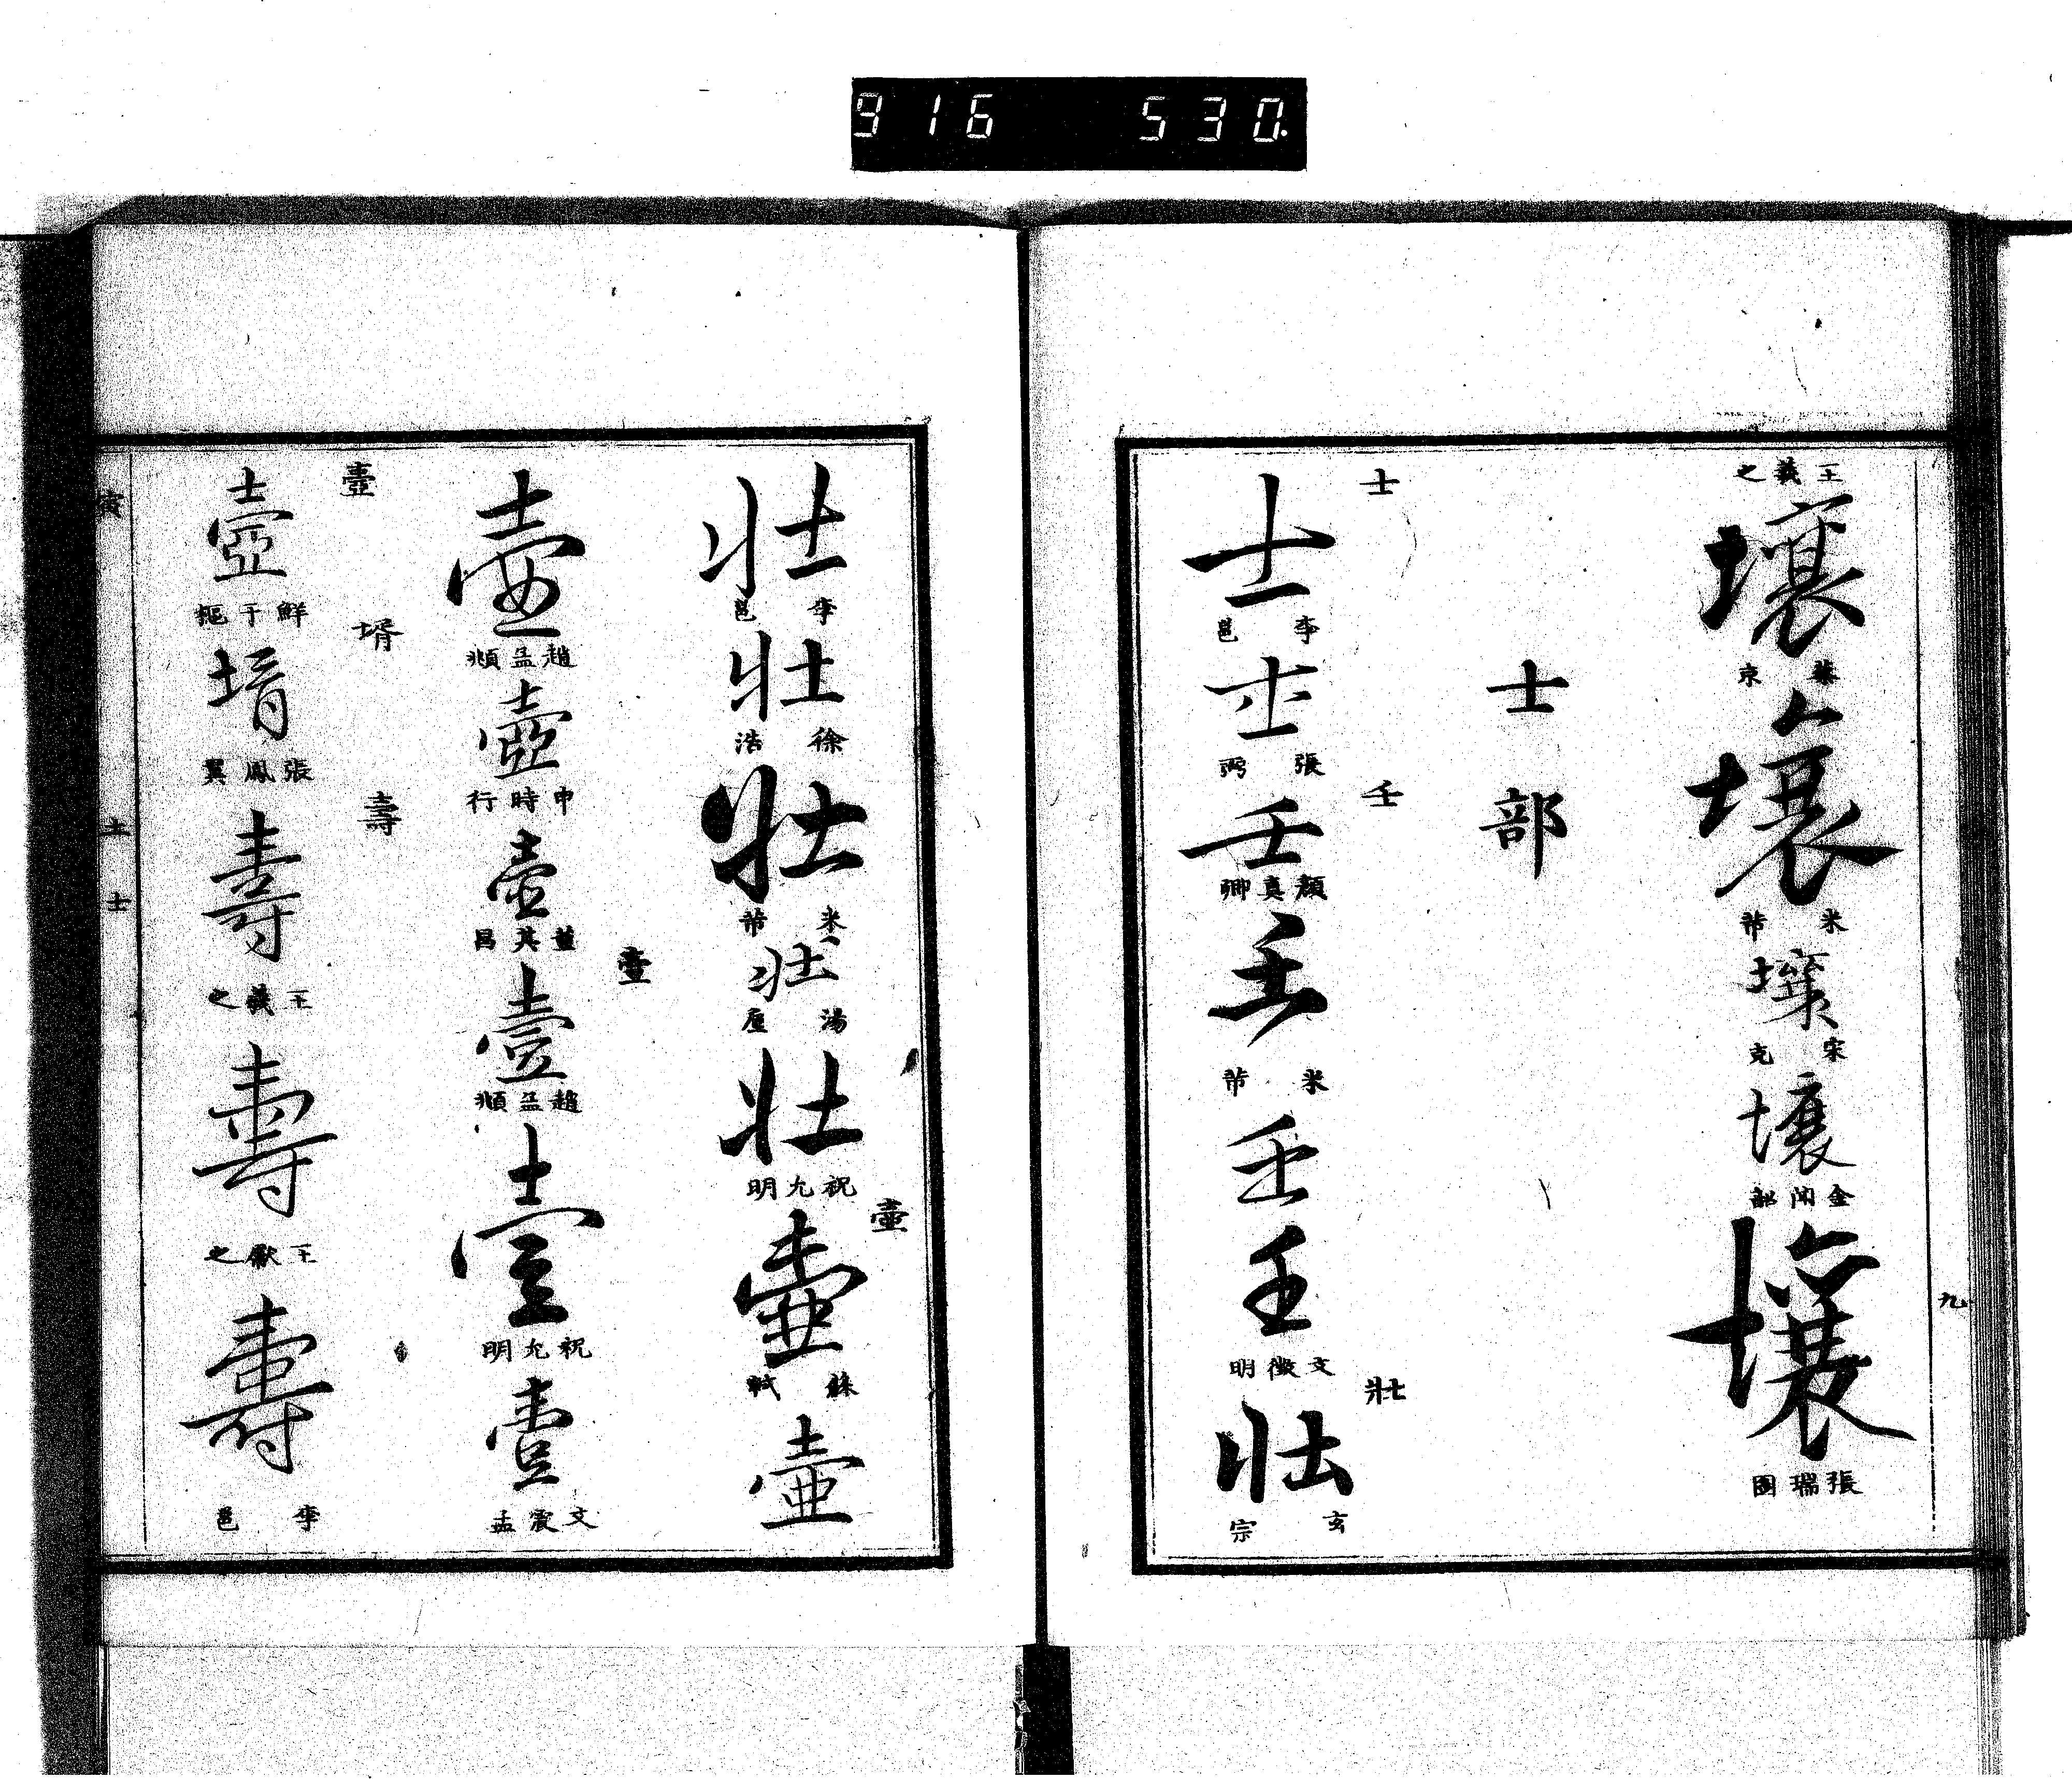 916 530.
王羲之
壤
蔡京
壤
米芾
壤
宋克
壤
金聞韶
壤
張瑞圖
九
士部
士
士
李邕
士
壬
壬
顏真卿
壬
米芾
壬
壬
文徵明
壯
壯
玄宗
壯
李邕
壯
徐浩
壯
米芾
壯
湯
壯
祝允明
壺
壺
蘇軾
壺
壺
趙孟頫
壺
申時行
壺
董其昌
壹
壹
趙孟頫
壹
祝允明
壹
文震孟
壼
壼
鮮于樞
壻
壻
張鳳翼
壽
壽
王羲之
壽
王獻之
壽
李邕
寅
土
士